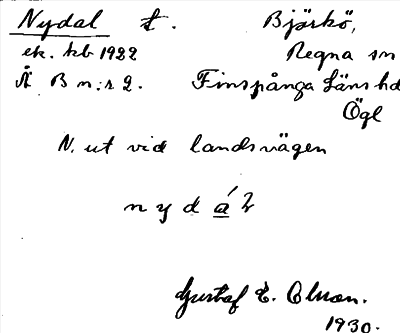 Nydal t. Björkö,
ek. kb 1922 Regna sn
Å B n:r 2. Finspånga Läns hd
Ögl
N. ut vid landsvägen
n y d á l
Gustaf E. Olson.
1930.